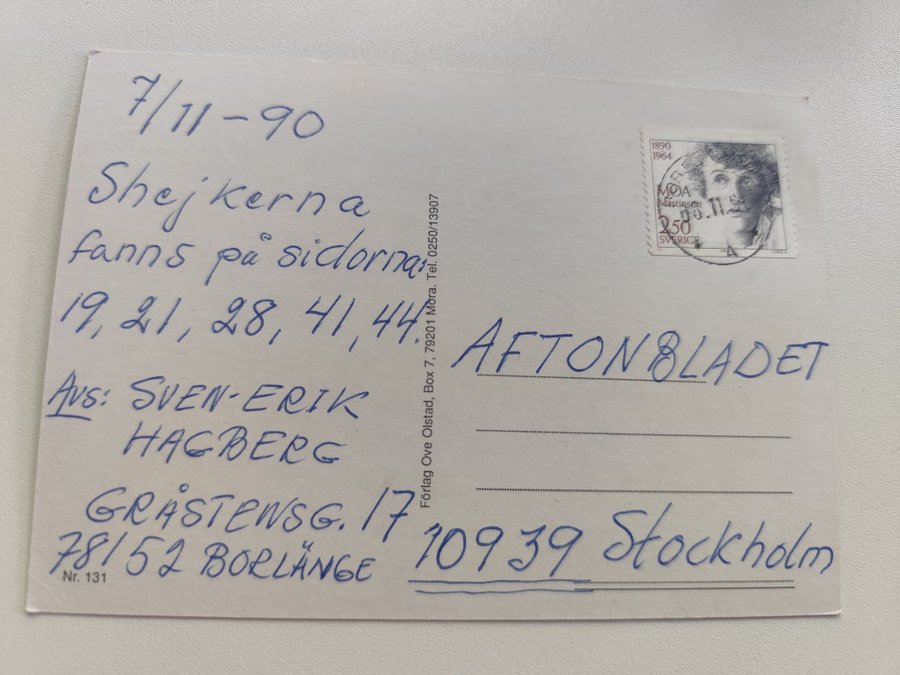 7/11-90
Shejkerna
fanns på sidorna:
19, 21, 28, 41, 44.
Avs: SVEN-ERIK
HAGBERG
GRÅSTENSG. 17
78152 BORLÄNGE
Nr. 131
Förlag Ove Olstad, Box 7, 79201 Mora. Tel. 0250/13907
1890
1964
MOA
Martinson
250
SVERIGE
AFTONBLADET
10939 Stockholm